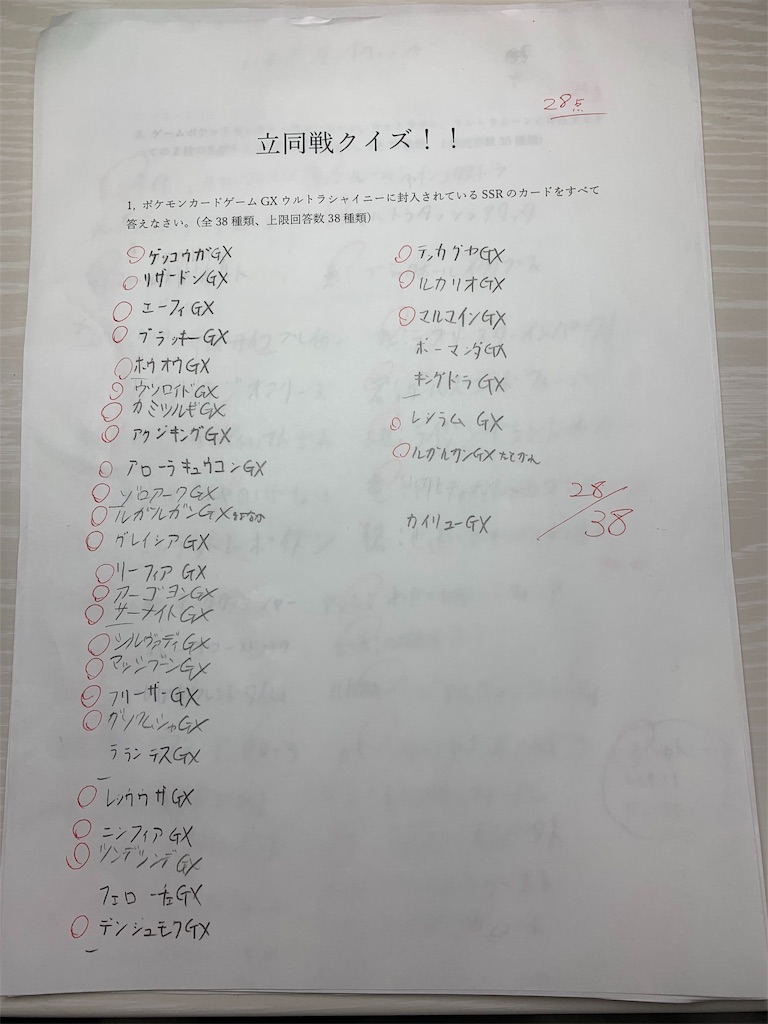 28点
立同戦クイズ！！
1. ポケモンカードゲーム GX ウルトラシャイニーに封入されている SSR のカードをすべて
答えなさい。（全 38 種類、上限回答数 38 種類）
ゲッコウガGX
リザードンGX
エーフィGX
ブラッキーGX
ホウオウGX
ウツロイドGX
カミツルギGX
アクジキングGX
アローラキュウコンGX
ゾロアークGX
ルガルガンGX
グレイシアGX
リーフィアGX
アーゴヨンGX
サーナイトGX
シルヴァディGX
マッシブーンGX
フリーザーGX
グソクムシャGX
ラランテスGX
レックウザGX
ニンフィアGX
ツンデツンデGX
フェローチェGX
デンジュモクGX
テッカグヤGX
ルカリオGX
マルマインGX
ボーマンダGX
キングドラGX
レシラムGX
ルガルガンGX たそがれ
カイリューGX
28/38